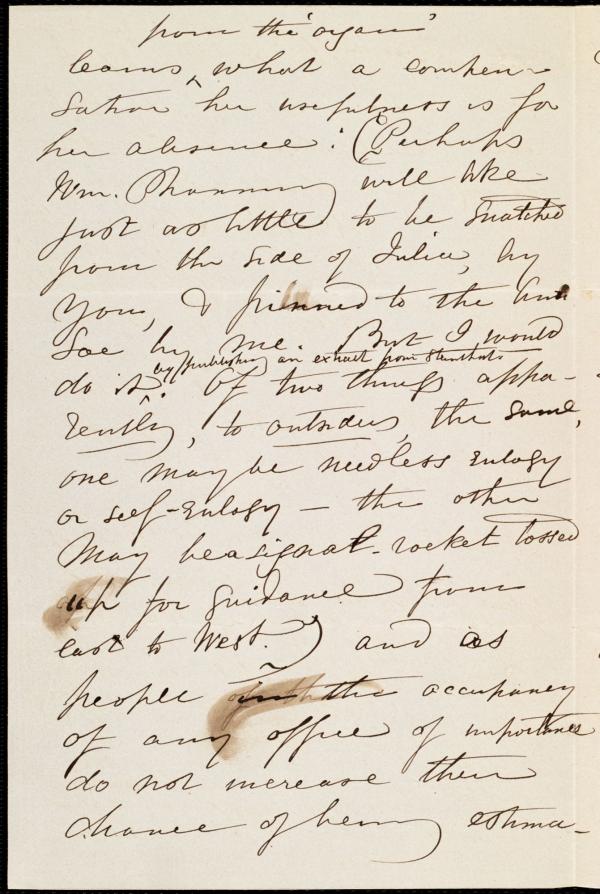 from the 'organ'
learns, what a compen-
sation her usefulness is for
her absence. (Perhaps
Wm. Channing will like
just as little to be snatched
from the side of Julia, by
you, & pinned to the Anti
Soc by me. But I would
by publishing an extract from
do it. Of two things appa-
rently, to outsiders, the same,
one may be needless eulogy
or self-eulogy — the other
may be a signal-rocket tossed
up for guidance from
east to West.) and as
people in the occupancy
of any office of importance
do not increase their
chance of being estima-